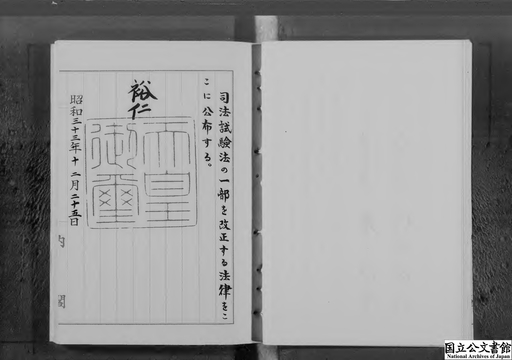 司法試験法の一部を改正する法律をこ
こに公布する。
裕仁
天皇
御璽
昭和三十三年十二月二十五日
内閣
国立公文書館
National Archives of Japan